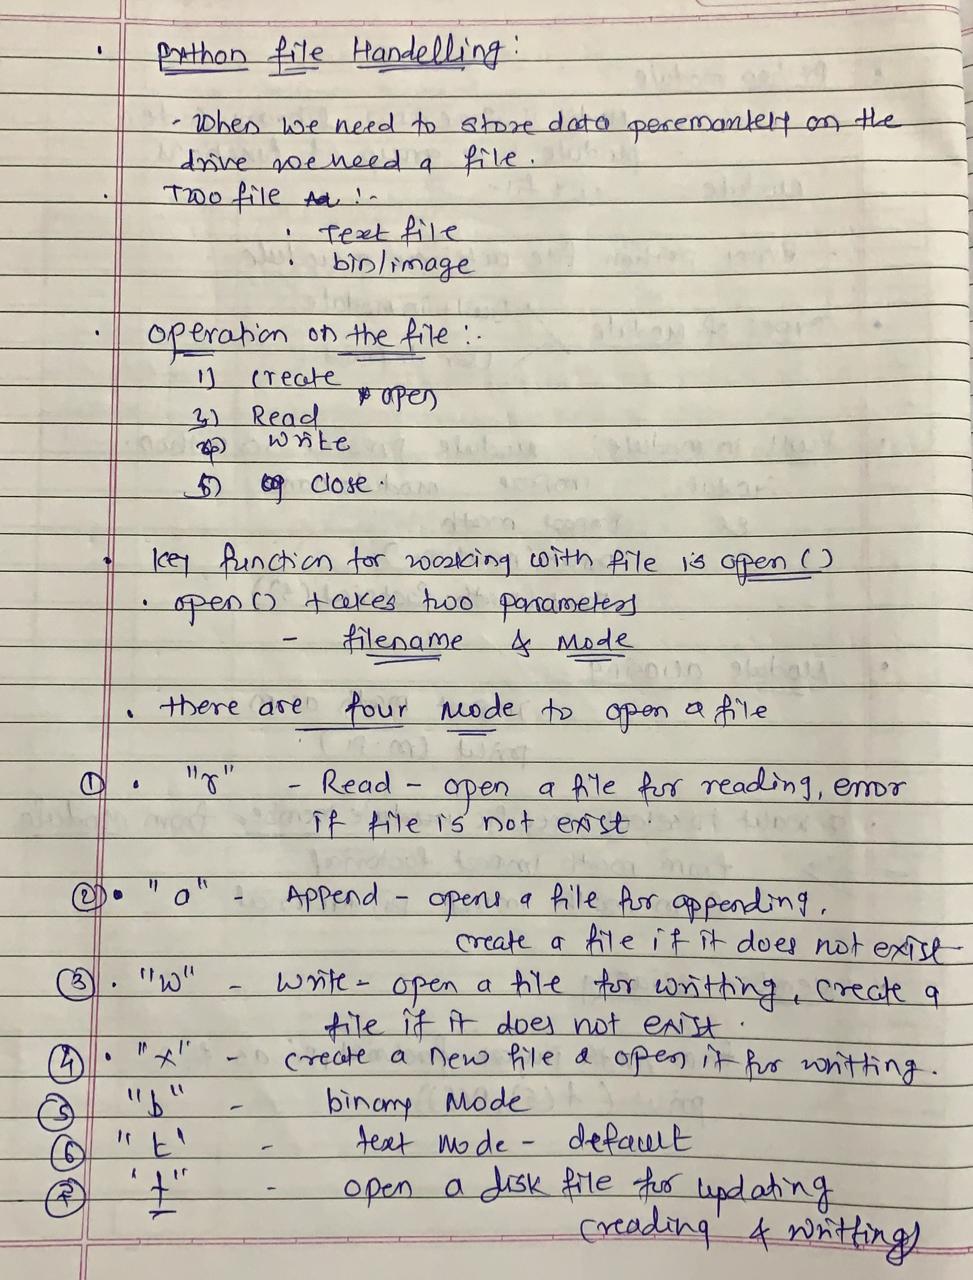 . Python file Handelling:
- When we need to store data peremantely on the
drive we need a file.
. Two file :-
. Text file
. bin/image
. Operation on the file :-
1) Create
open
3) Read
4) Write
5) close.
. key function for working with file is open ()
. open () takes two parameters
- filename & Mode
. there are four Mode to open a file
① . "r" - Read - open a file for reading, error
if file is not exist.
② . "a" - Append - opens a file for appending,
create a file if it does not exist
③ . "w" - Write - open a file for writting, create a
file if it does not exist.
④ . "x" - create a new file & open it for writting.
⑤ "b" - binary Mode
⑥ "t" - text mode - default
⑦ "+" - open a disk file for updating
(reading & writting)